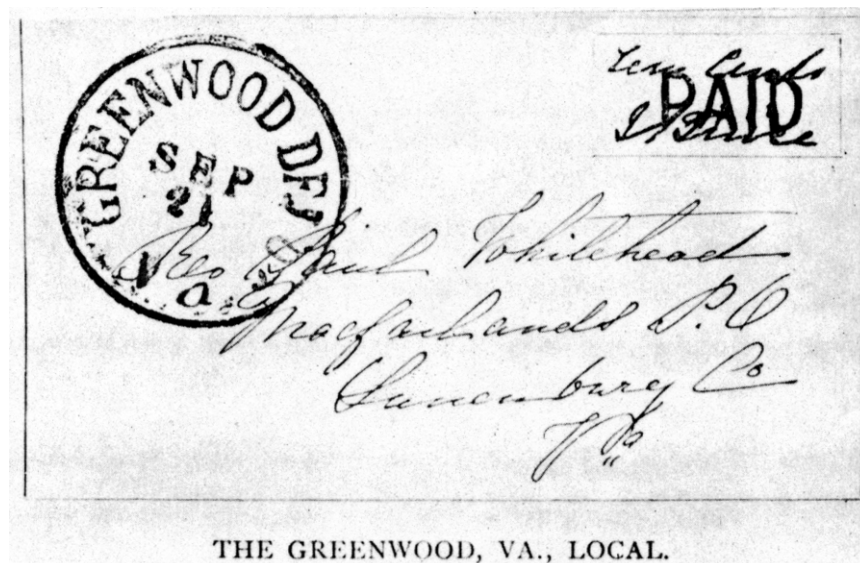 GREENWOOD DEP
SEP
21
Va.
Ten Cents
PAID
Rev Paul Whitehead
Macfarlands P.O
Lunenburg Co
Va
THE GREENWOOD, VA., LOCAL.